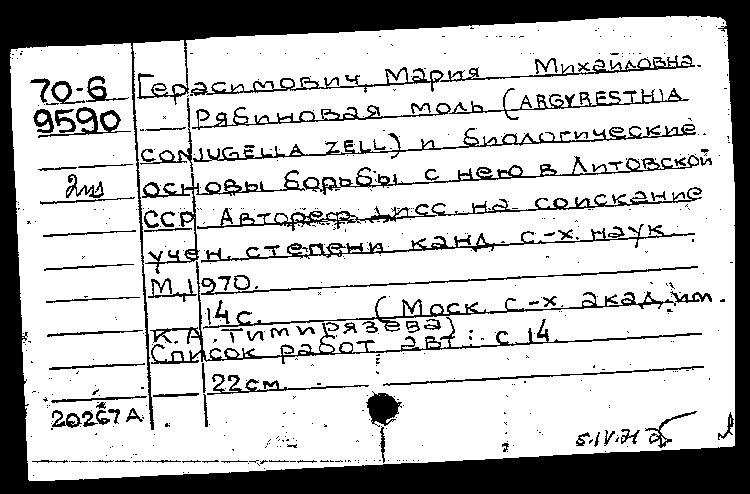 70-6 Герасимович, Мария Михайловна.
9590 Рябиновая моль (ARGYRESTHIA
CONJUGELLA ZELL) и биологические
основы борьбы с нею в Литовской
ССР. Автореф. дисс. на соискание
учен. степени канд. с.-х. наук.
М., 1970.
14 с. (Моск. с.-х. акад. им.
К.А. Тимирязева)
Список работ авт.: с 14.
22 см.
20267А
5.IV.71